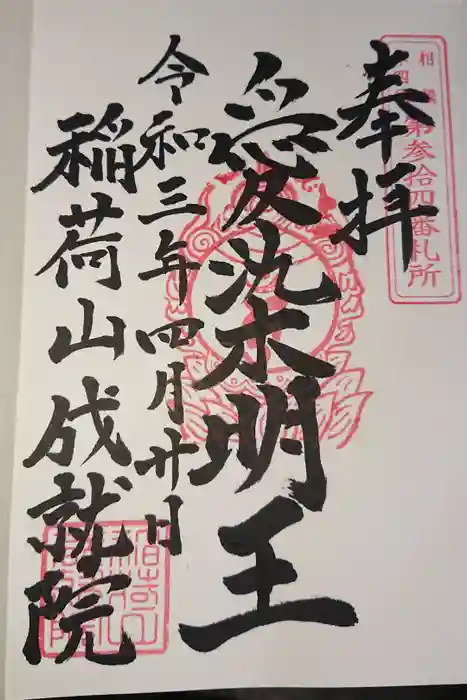 奉拝
第参拾四番札所
愛染明王
令和三年四月廿日
稲荷山成就院